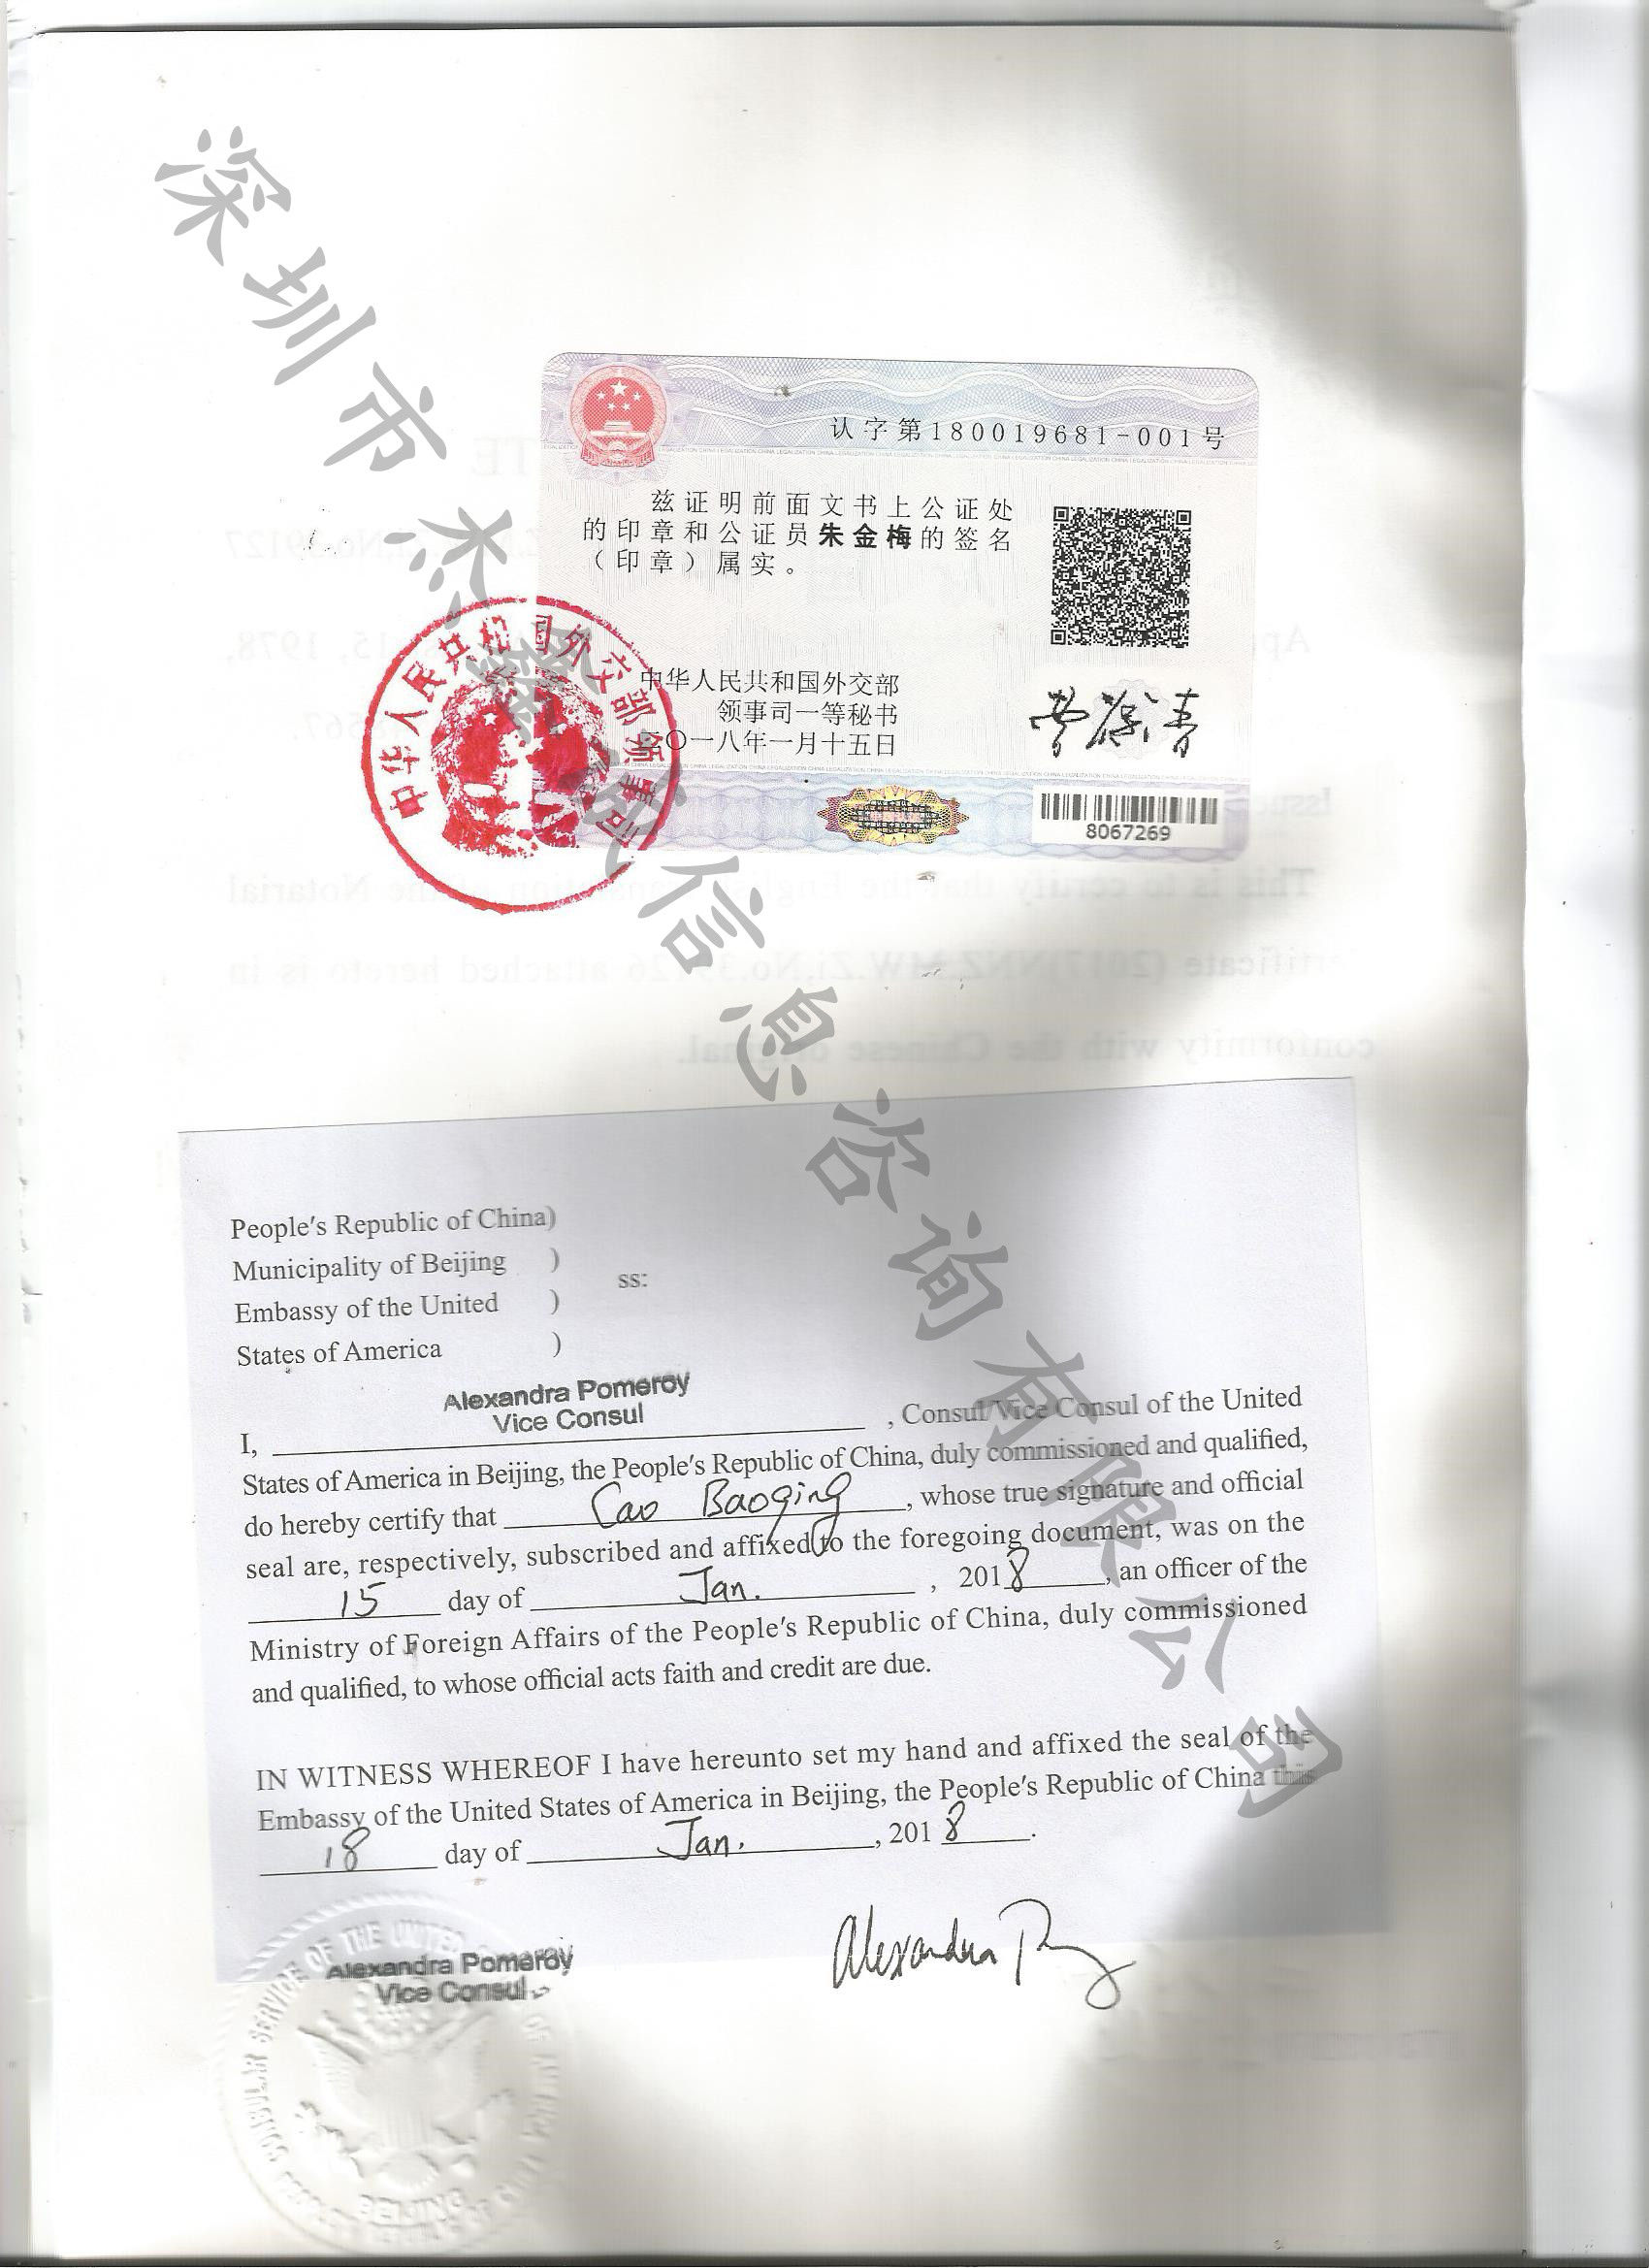 深圳市杰鑫诚信息咨询有限公司
认字第180019681-001号
兹证明前面文书上公证处
的印章和公证员朱金梅的签名
（印章）属实。
中华人民共和国外交部
领事司一等秘书
二〇一八年一月十五日
中华人民共和国外交部领事司
8067269
People's Republic of China)
Municipality of Beijing )
ss:
Embassy of the United )
States of America )
Alexandra Pomeroy
Vice Consul
I, , Consul/Vice Consul of the United
States of America in Beijing, the People's Republic of China, duly commissioned and qualified,
do hereby certify that Cao Baoqing, whose true signature and official
seal are, respectively, subscribed and affixed to the foregoing document, was on the
15 day of Jan. , 2018, an officer of the
Ministry of Foreign Affairs of the People's Republic of China, duly commissioned
and qualified, to whose official acts faith and credit are due.
IN WITNESS WHEREOF I have hereunto set my hand and affixed the seal of the
Embassy of the United States of America in Beijing, the People's Republic of China this
18 day of Jan. , 2018.
Alexandra Pomeroy
Vice Consul
Alexandra
CONSULAR SERVICE OF THE UNITED
BEIJING